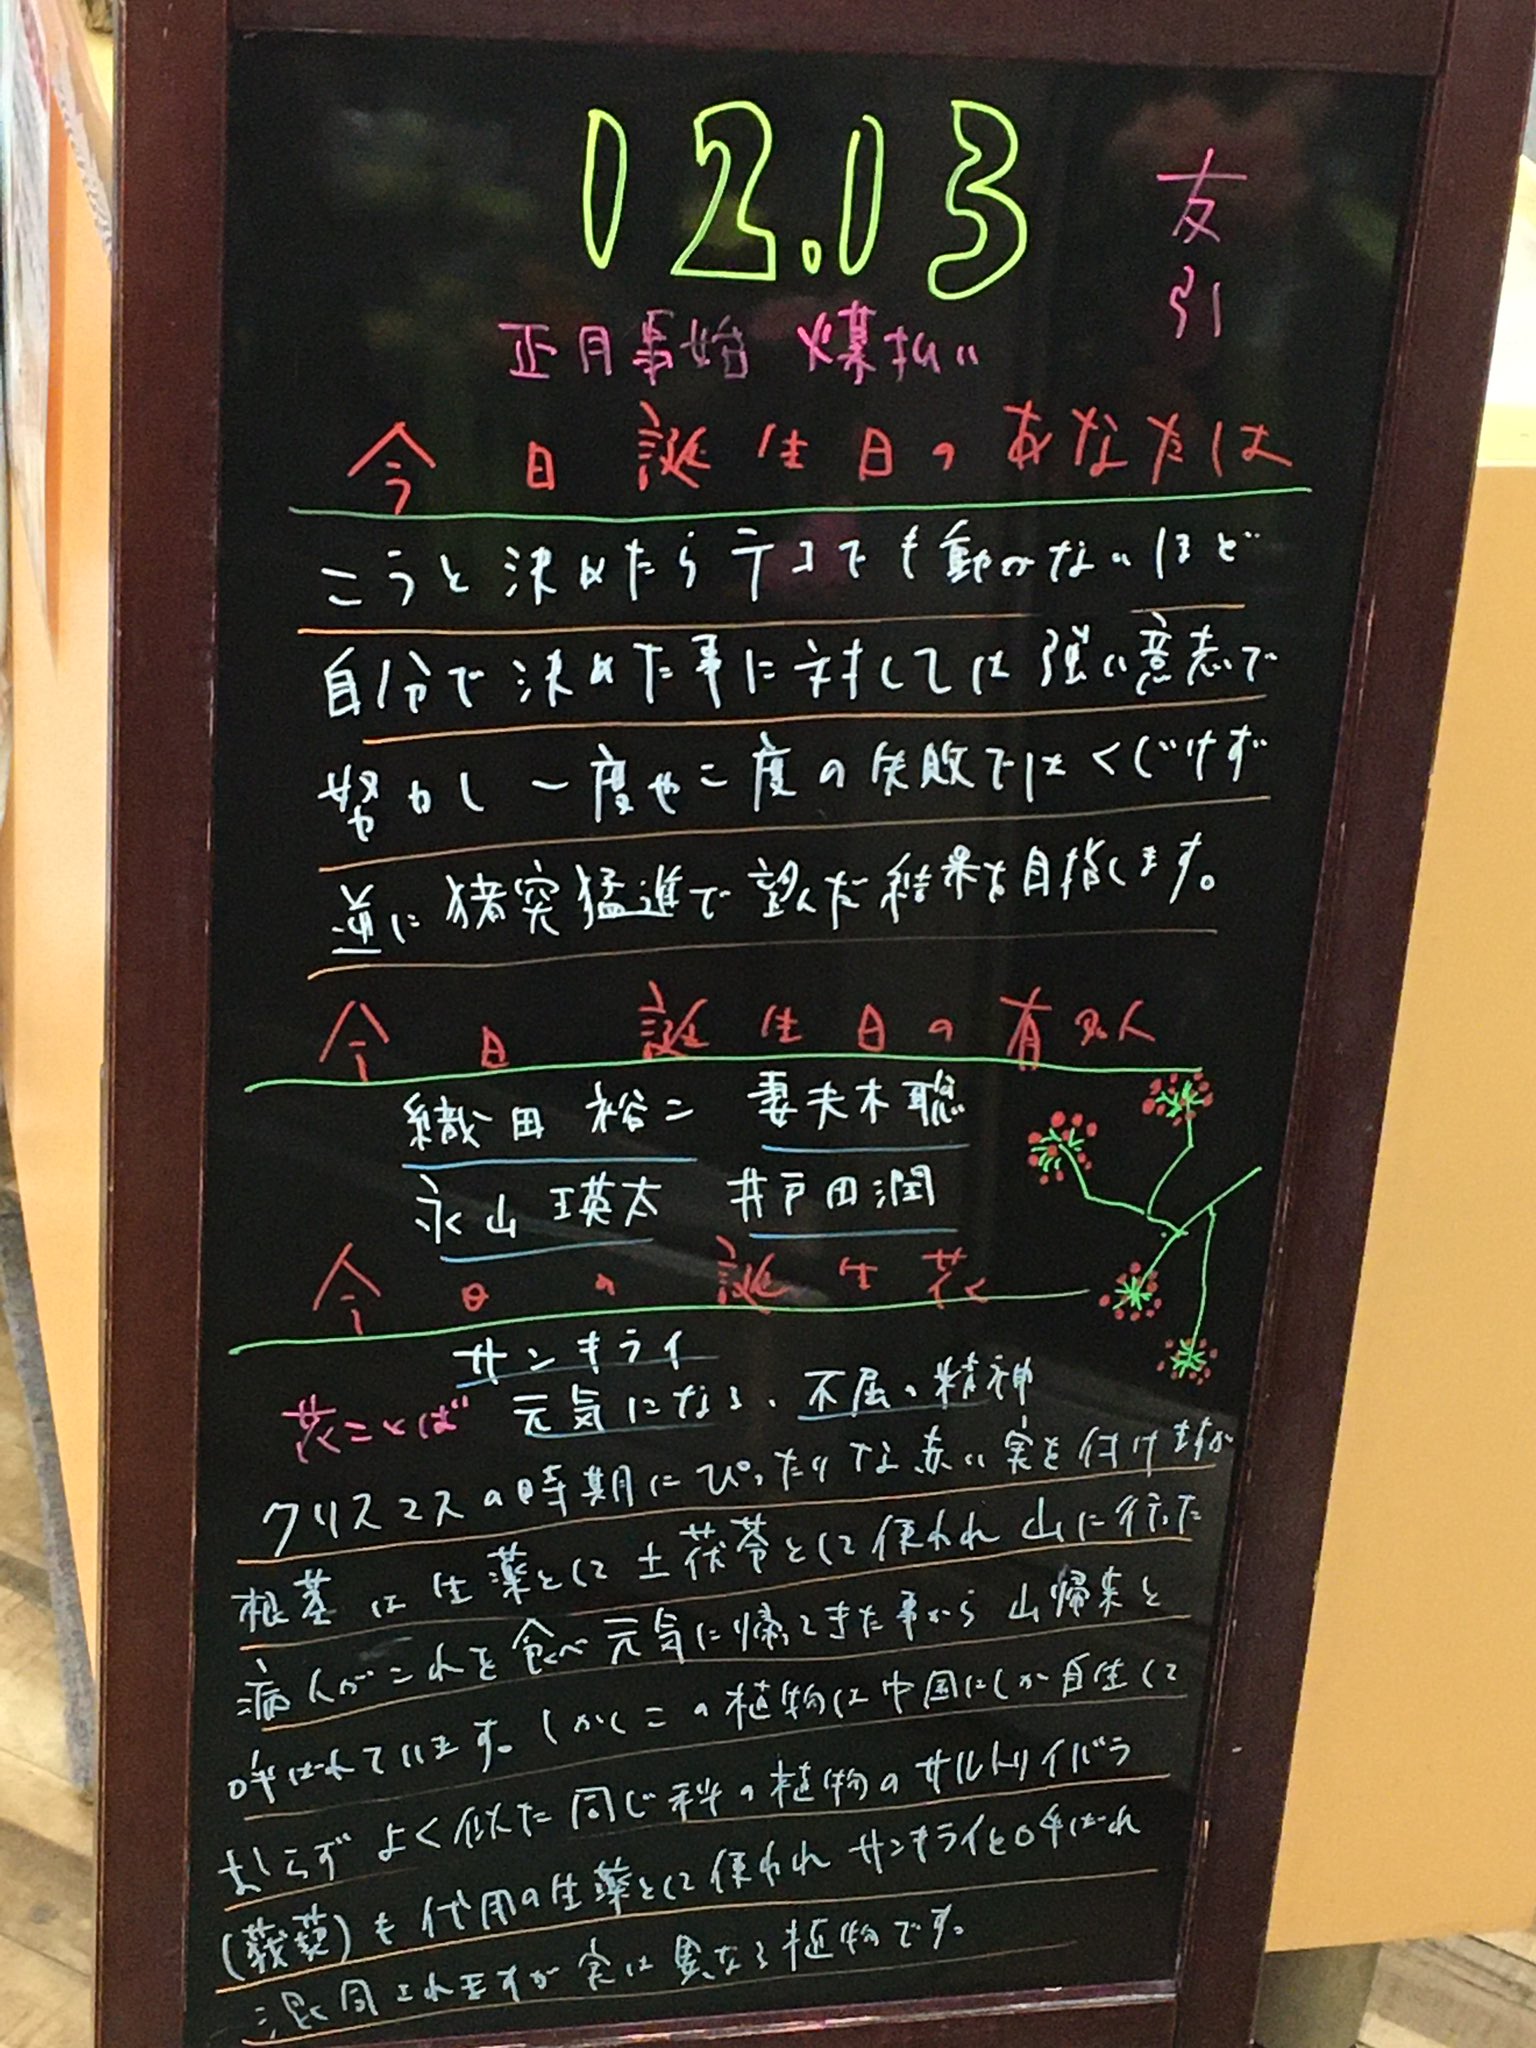 02.03
友引
正月事始 煤払い
今日誕生日のあなたは
こうと決めたらテコでも動かないほど
自分で決めた事に対しては強い意志で
努力し一度や二度の失敗ではくじけず
逆に猪突猛進で望んだ結果を目指します。
今日誕生日の有名人
織田裕二 妻夫木聡
永山瑛太 井戸田潤
今日の誕生花
サンキライ
花ことば 元気になる、不屈の精神
クリスマスの時期にぴったりな赤い実を付けますが
根茎は生薬として土茯苓として使われ山に行った
病人がこれを食べ元気に帰ってきた事から山帰来と
呼ばれています。しかしこの植物は中国にしか自生して
おらずよく似た同じ科の植物のサルトリイバラ
(菝葜)も代用の生薬として使われサンキライと呼ばれ
混同されますが実は異なる植物です。